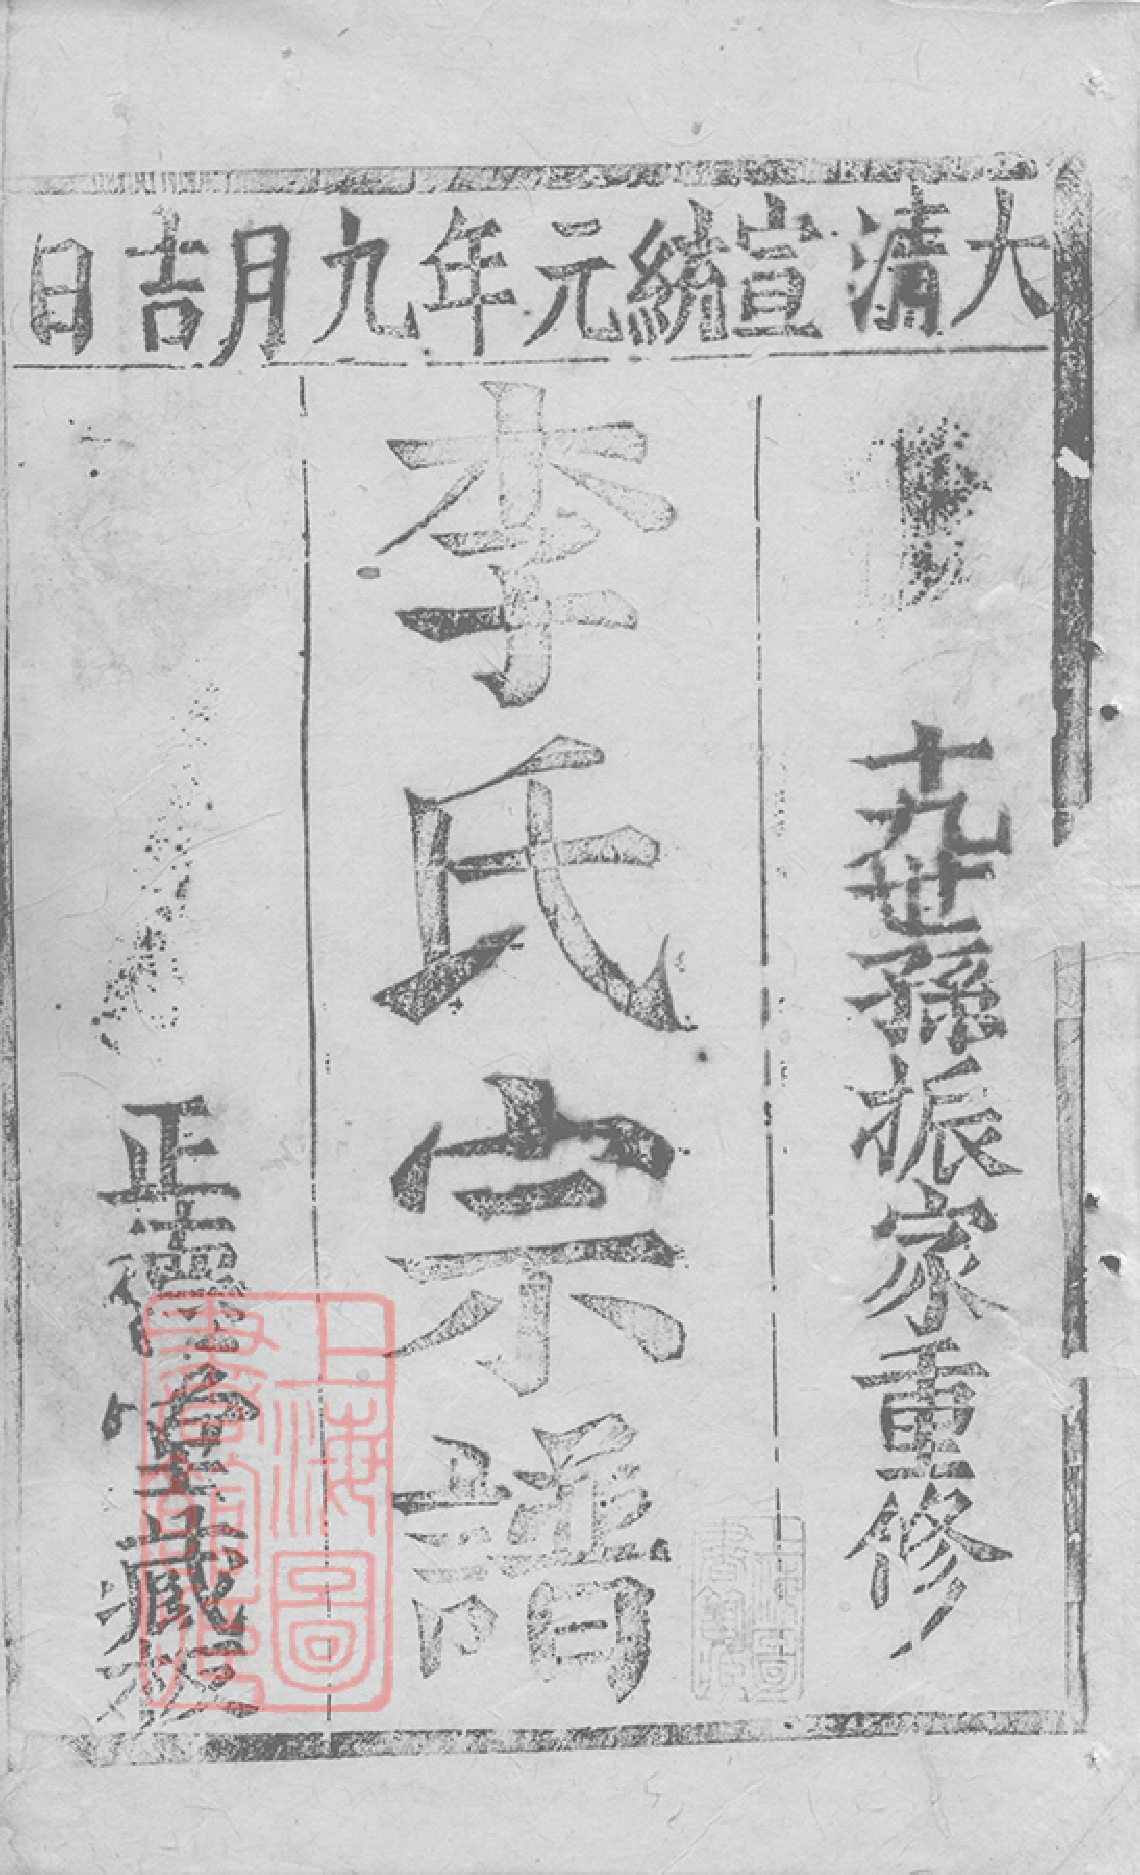 大清宣統元年九月吉日
十九世孫振家重修
李氏宗譜
正德堂藏板
上海圖書館藏